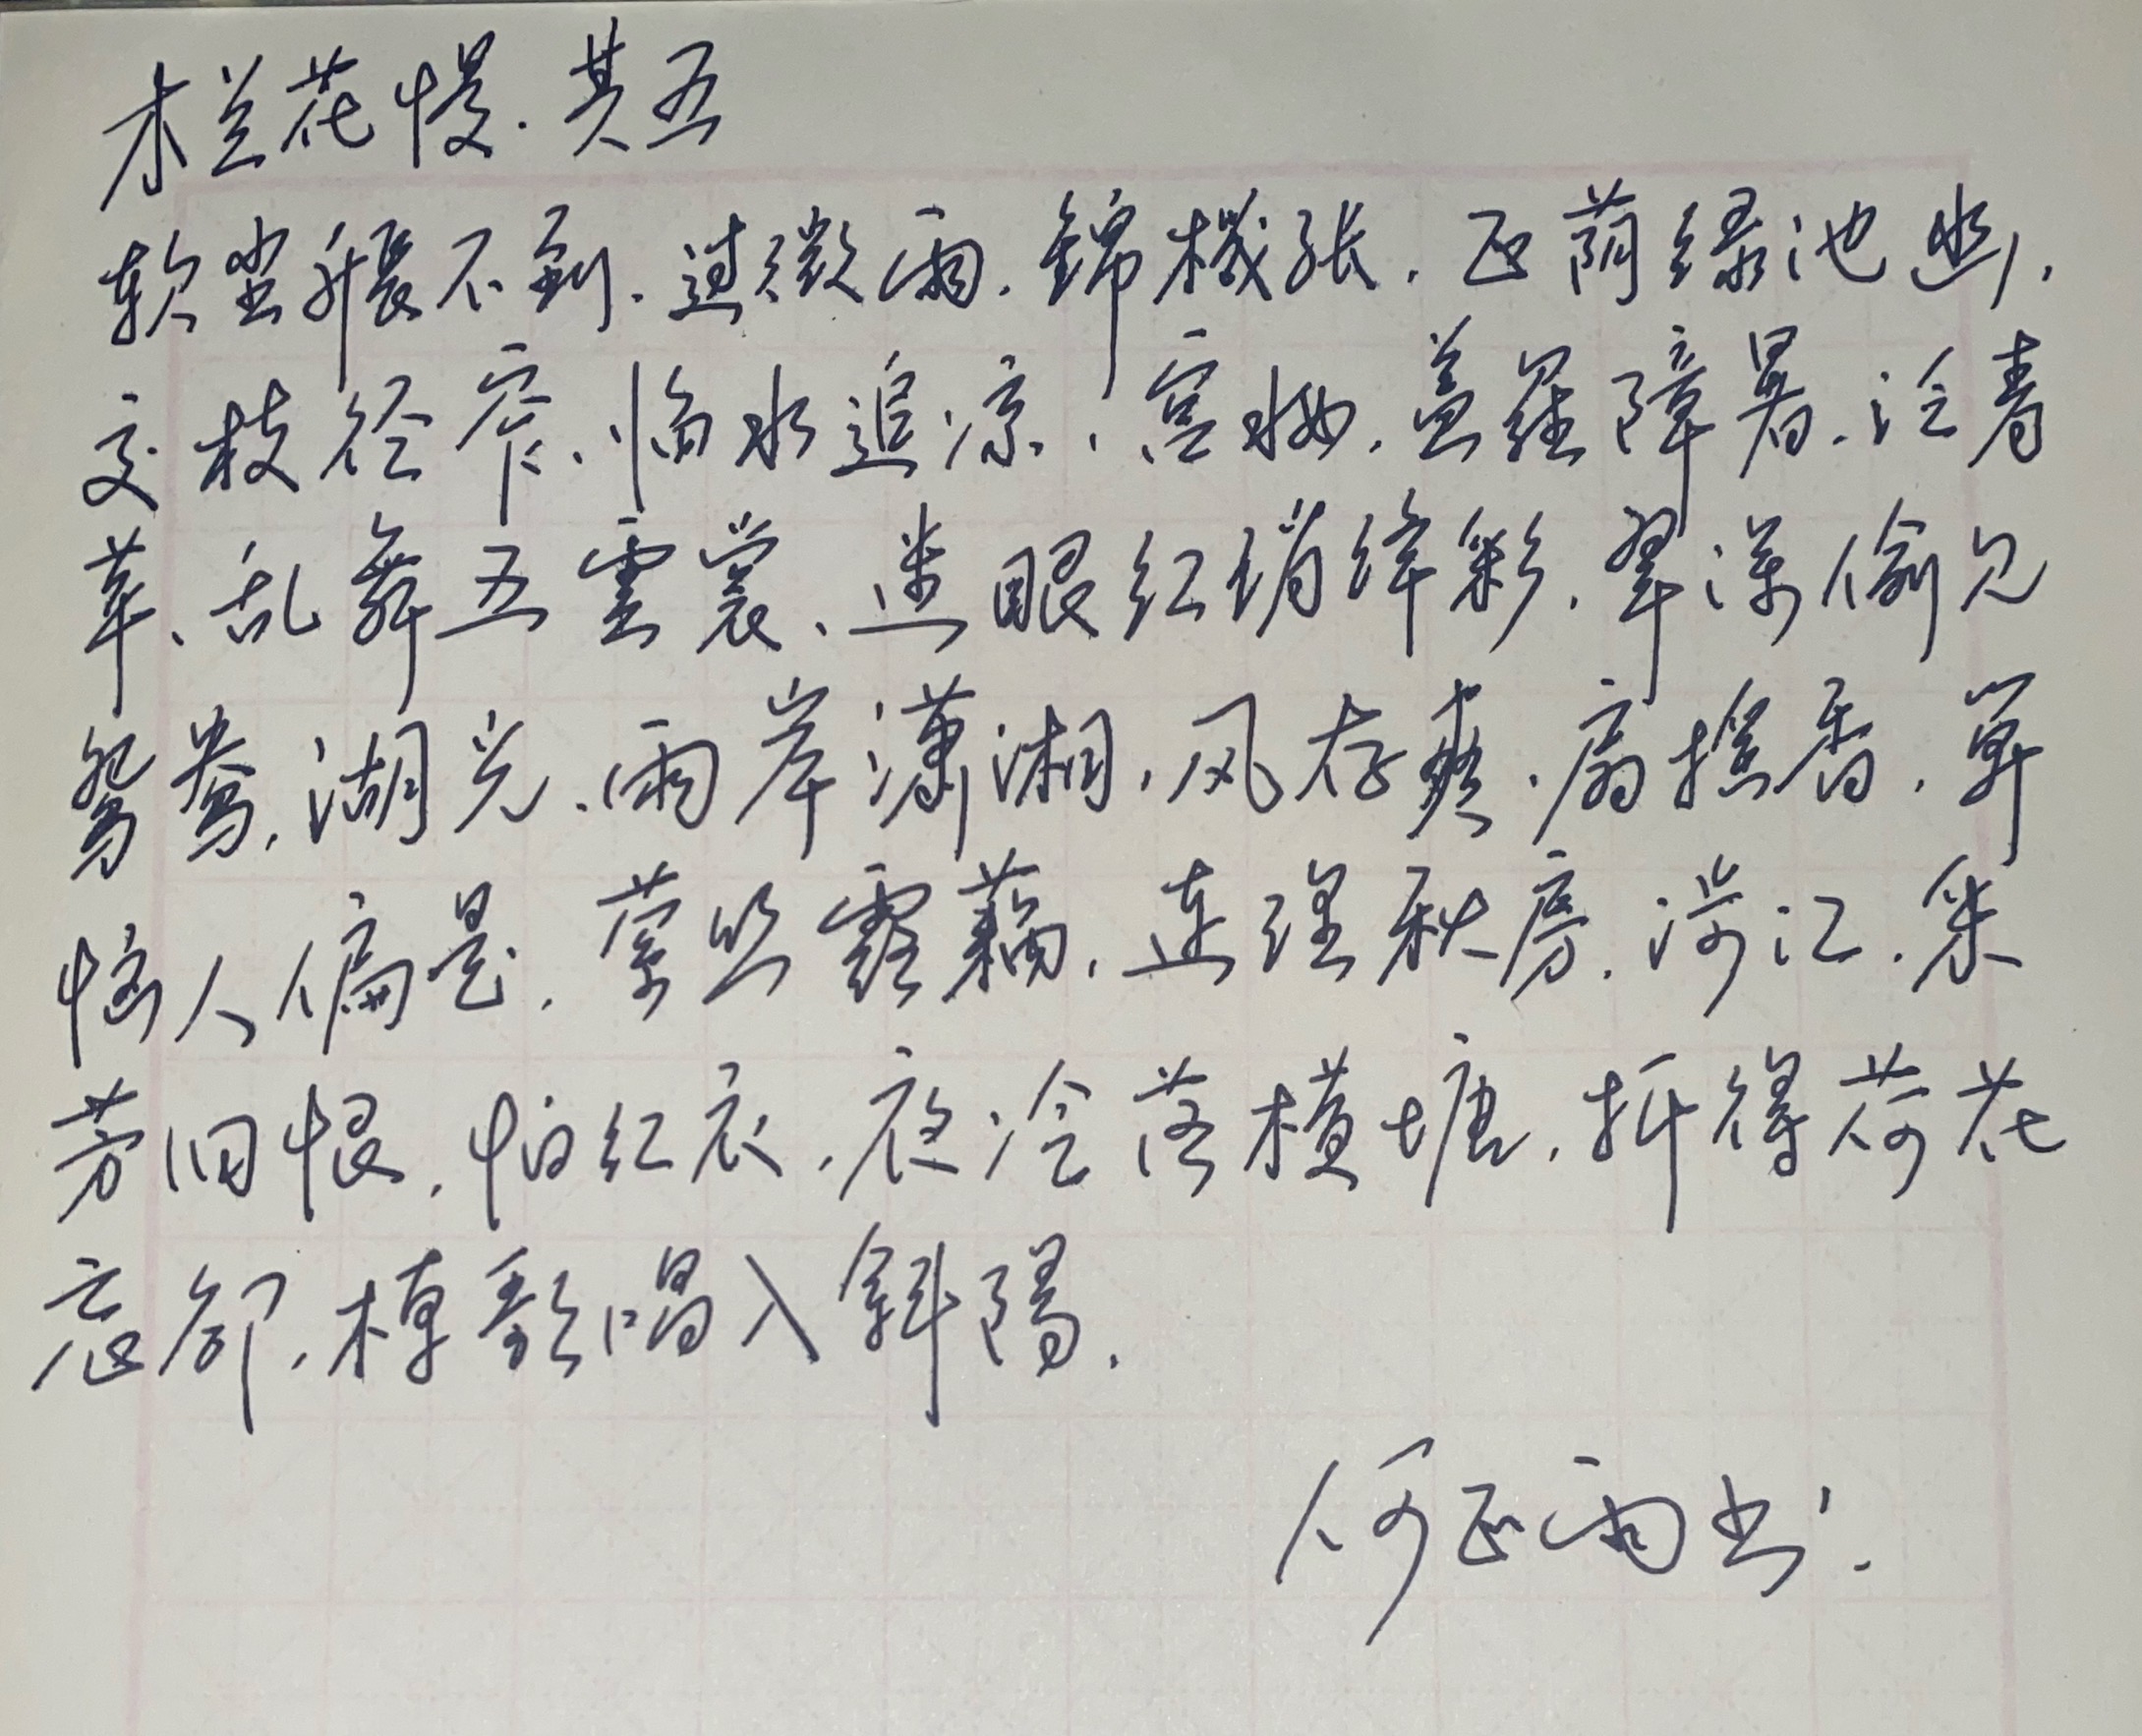 木兰花慢.其五
软尘飛不到.过微雨.錦機张.正荫绿池幽,
交枝径窄、临水追凉、宫妆.盖羅障暑.泛青
苹、乱舞五雲裳、迷眼红绡绛彩.翠深偷见
鸳鸯.湖光、兩岸潇湘.风存爽.扇摇香.算
恼人偏是.萦丝露藕.连理秋房.涉江.采
芳旧恨.怕红衣.夜冷落横塘.折得荷花
忘却.棹歌唱入斜陽.
何正雨书.